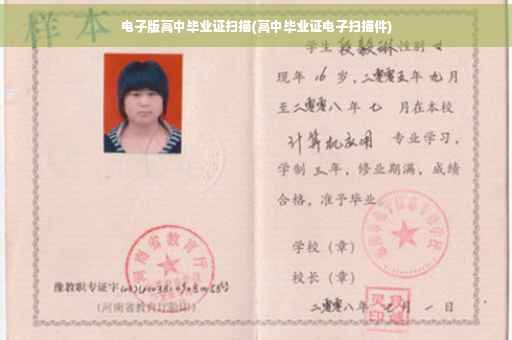 电子版高中毕业证扫描(高中毕业证电子扫描件)
样本
学生 段毅琳 性别 女
现年 16 岁,二零零五年 九 月
至二零零八 年 七 月在本校
计算机应用 专业学习,
学制 三 年,修业期满,成绩
合格,准予毕业。
学校(章)
校长(章)
二零零八年 七 月 一 日
河南省教育厅
豫教职专证字
(河南省教育厅验印)